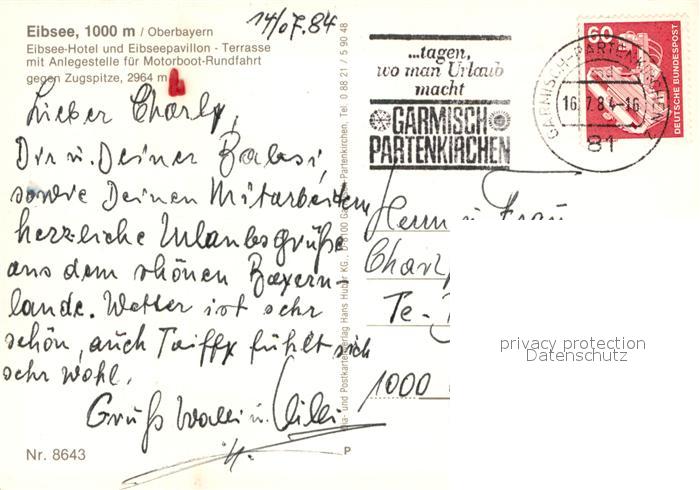 Eibsee, 1000 m / Oberbayern
Eibsee-Hotel und Eibseepavillon - Terrasse
mit Anlegestelle für Motorboot-Rundfahrt
gegen Zugspitze, 2964 m
14/07.84
Lieber Charly,
Dir u. Deiner Babsi,
sowie Deinen Mitarbeitern
herzliche Urlaubsgrüße
aus dem schönen Bayern-
lande. Wetter ist sehr
schön, auch Taiffy fühlt sich
sehr wohl.
Gruß Walli u. Willi
Nr. 8643
P
Postkartenverlag Hans Huber KG., D-8100 Garmisch-Partenkirchen, Tel. 0 88 21 / 5 90 48
...tagen,
wo man Urlaub
macht
GARMISCH
PARTENKIRCHEN
GARMISCH-PARTENKIRCHEN
16.7.84-16
81
60
DEUTSCHE BUNDESPOST
Herrn u. Frau
Charly
Te-
1000
privacy protection
Datenschutz